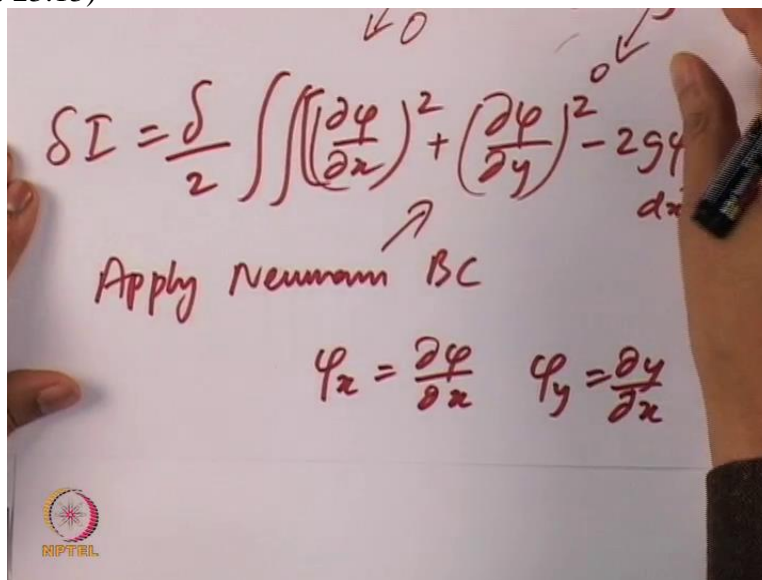 23:13)
↙ 0 ↙
δI = δ/2 ∫∫[(∂φ/∂x)² + (∂φ/∂y)²⁰ - 2gφ
dx
Apply Neumann BC
φₓ = ∂φ/∂x φ_y = ∂y/∂x
NPTEL